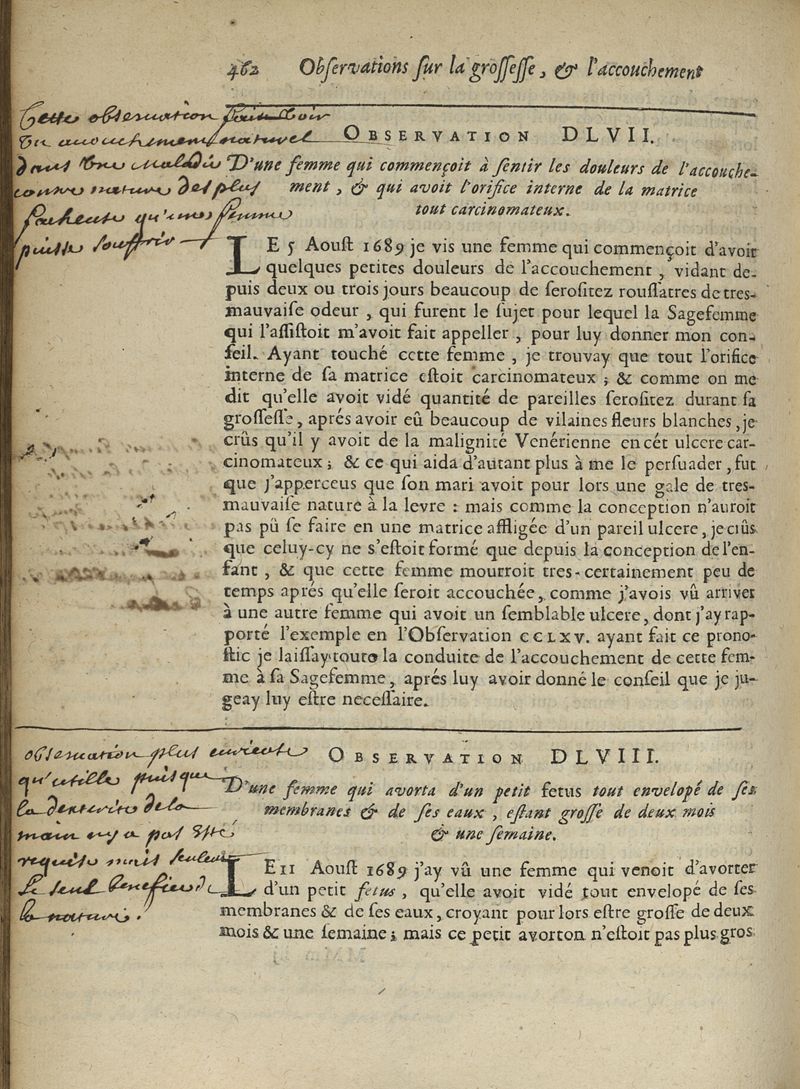 462 Observations sur la grossesse, & l'accouchement
Cette observation fait voir
un accouchement naturel
dans une maladie
comme naturel des plus
facheuses qu'une femme
puisse souffrir
OBSERVATION DLVII.
D'une femme qui commençoit à sentir les douleurs de l'accouche-
ment, & qui avoit l'orifice interne de la matrice
tout carcinomateux.
LE 5 Aoust 1689 je vis une femme qui commençoit d'avoir
quelques petites douleurs de l'accouchement, vidant de-
puis deux ou trois jours beaucoup de serositez roussatres de tres-
mauvaise odeur, qui furent le sujet pour lequel la Sagefemme
qui l'assistoit m'avoit fait appeller, pour luy donner mon con-
seil. Ayant touché cette femme, je trouvay que tout l'orifice
interne de sa matrice estoit carcinomateux; & comme on me
dit qu'elle avoit vidé quantité de pareilles serositez durant sa
grossesse, aprés avoir eû beaucoup de vilaines fleurs blanches, je
crûs qu'il y avoit de la malignité Venérienne en cét ulcere car-
cinomateux; & ce qui aida d'autant plus à me le persuader, fut
que j'apperceus que son mari avoit pour lors une gale de tres-
mauvaise nature à la levre: mais comme la conception n'auroit
pas pû se faire en une matrice affligée d'un pareil ulcere, je crûs
que celuy-cy ne s'estoit formé que depuis la conception de l'en-
fant, & que cette femme mourroit tres-certainement peu de
temps aprés qu'elle seroit accouchée, comme j'avois vû arriver
à une autre femme qui avoit un semblable ulcere, dont j'ay rap-
porté l'exemple en l'Observation CCLXV. ayant fait ce prono-
stic je laissay toute la conduite de l'accouchement de cette fem-
me à sa Sagefemme, aprés luy avoir donné le conseil que je ju-
geay luy estre necessaire.
observation plus curieuse
qu'utille puis que
la dexterité de la
main n'y a pas esté
requise mais seulement
le seul benefice de
la nature.
OBSERVATION DLVIII.
D'une femme qui avorta d'un petit fetus tout envelopé de ses
membranes & de ses eaux, estant grosse de deux mois
& une semaine.
LE 11 Aoust 1689 j'ay vû une femme qui venoit d'avorter
d'un petit fetus, qu'elle avoit vidé tout envelopé de ses
membranes & de ses eaux, croyant pour lors estre grosse de deux
mois & une semaine; mais ce petit avorton n'estoit pas plus gros